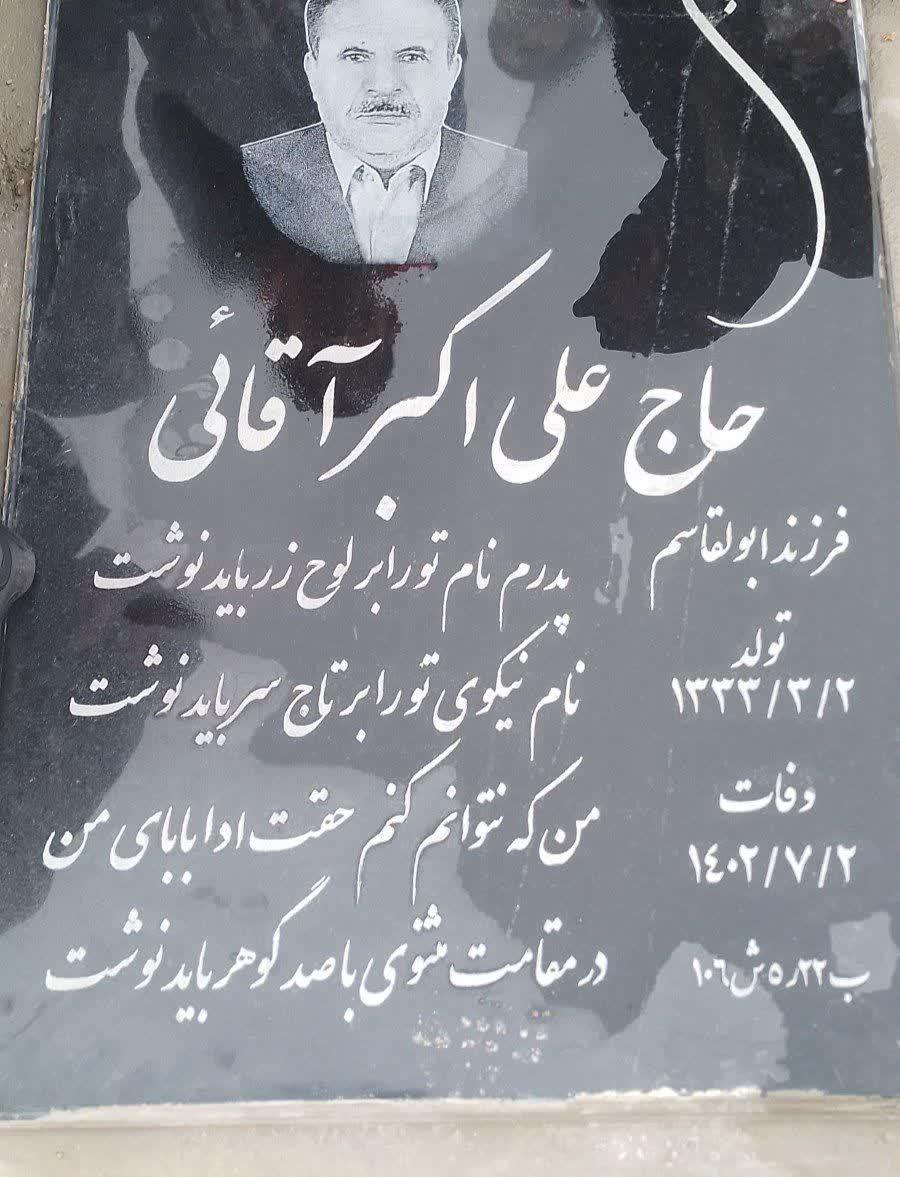 حاج علی اکبر آقائی
فرزند ابولقاسم
تولد
۱۳۳۳/۳/۲
وفات
۱٤۰۲/۷/۲
ب۲۲ر۵ش۱۰٦
پدرم نام تو را بر لوح زر باید نوشت
نام نیکوی تو را بر تاج سر باید نوشت
من که نتوانم کنم حقت ادا بابای من
در مقامت مثنوی با صد گوهر باید نوشت